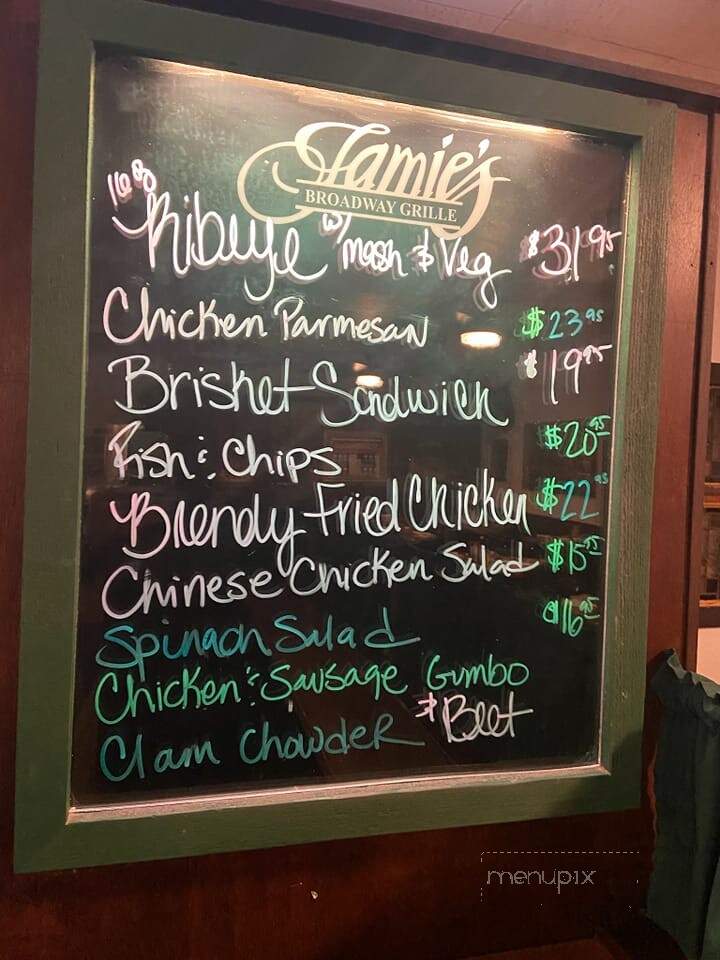 Jamie's
BROADWAY GRILLE
16oz Ribeye w/ mash & Veg $31.95
Chicken Parmesan $23.95
Brisket Sandwich $19.95
Fish & Chips $20.95
Brendy Fried Chicken $22.95
Chinese Chicken Salad $15.95
Spinach Salad $16.95
Chicken & Sausage Gumbo
Clam Chowder & Beet
menupix